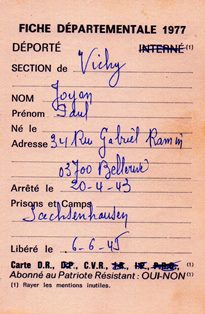 FICHE DÉPARTEMENTALE 1977
DÉPORTÉ INTERNÉ (1)
SECTION de Vichy
NOM Joyon
Prénom Paul
Né le
Adresse 34 Rue Gabriel Ramin
03700 Bellerive
Arrêté le 20-4-43
Prisons et Camps
Sachsenhausen
Libéré le 6-6-45
Carte D.R., D.P., C.V.R., I.R., (1)
Abonné au Patriote Résistant : OUI-NON (1)
(1) Rayer les mentions inutiles.